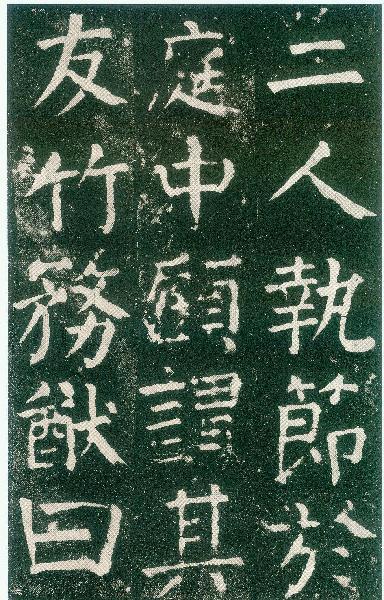 二人執節於
庭中顧謂其
友竹務猷曰